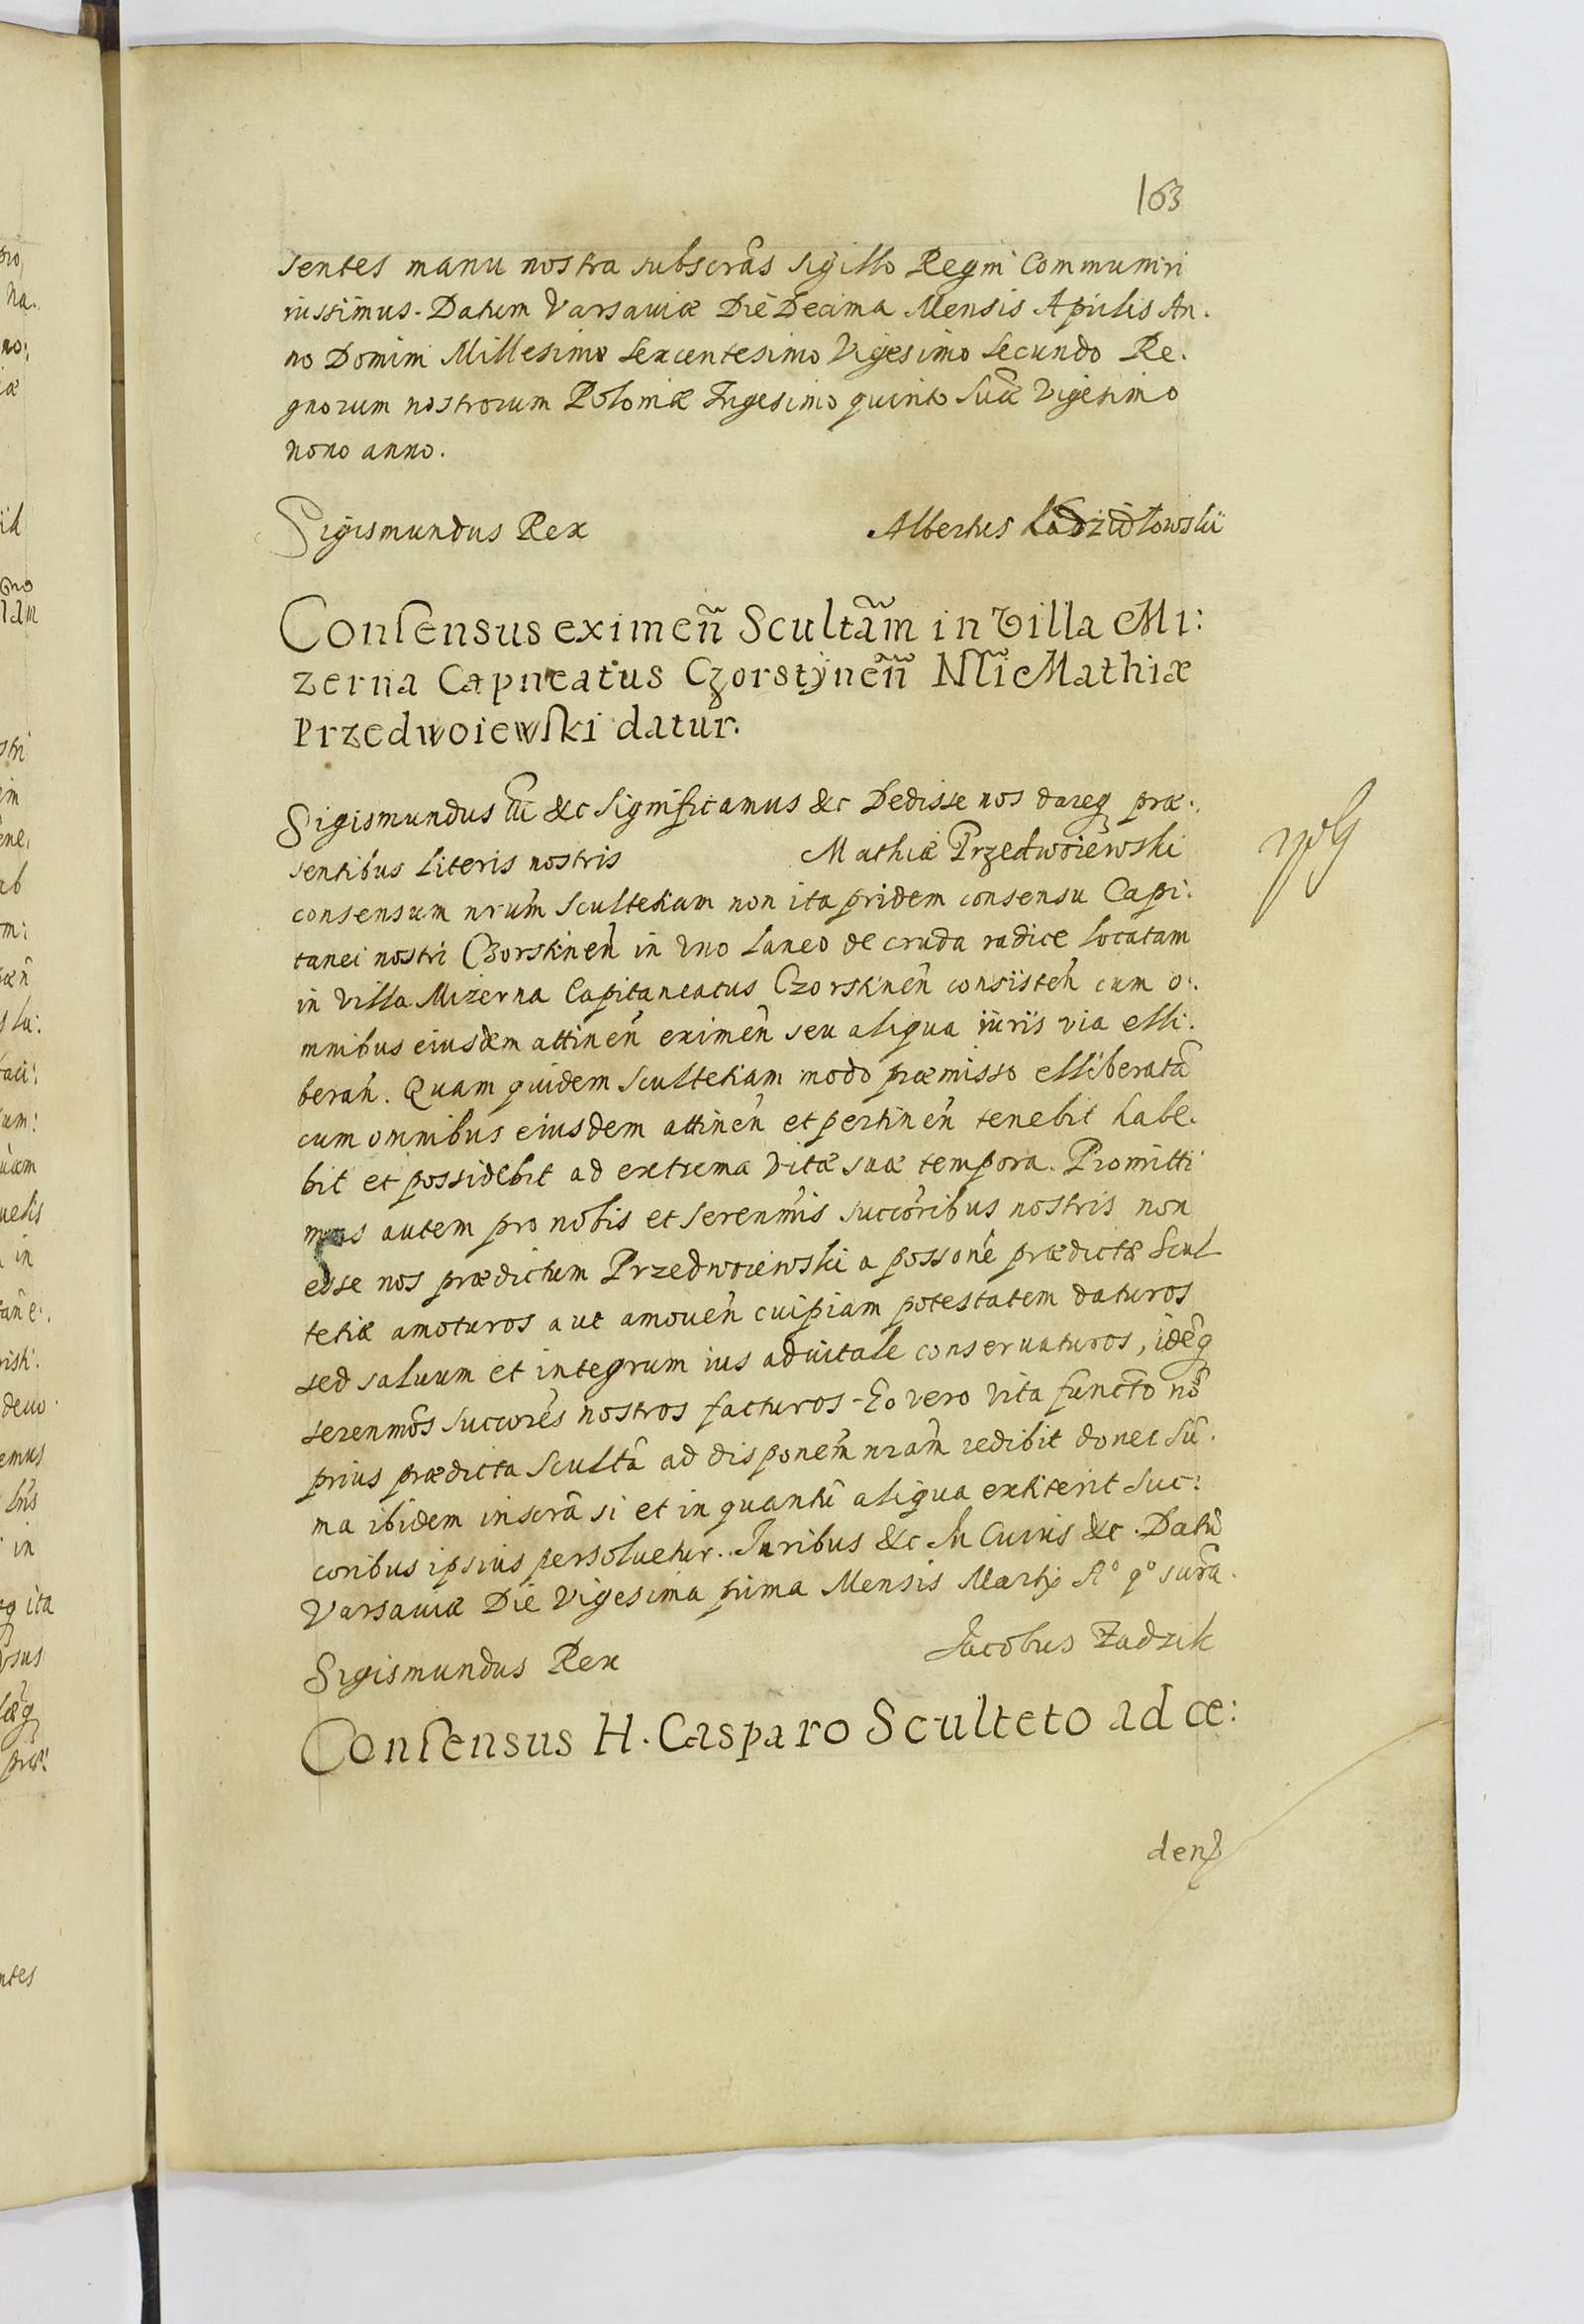 163
sentes manu nostra subscrãs sigillo Regni Communiri
iussimus. Datum Varsauiæ Die Decima Mensis Aprilis An.
no Domini Millesimo Sexcentesimo Vigesimo Secundo Re.
gnorum nostrorum Poloniæ Trigesimo quinto Suæ Vigesimo
nono anno.
Sigismundus Rex Albertus Kadzidłowskii
Consensus eximeñ Scultãm in Villa Mi:
zerna Capneatus Czorstÿneñ Nli Mathiæ
Przedwoiewski datur.
Sigismundus &c Significamus &c Dedisse nos dareq præ.
sentibus literis nostris Mathiæ Przedwoiewski
consensum nrum Scultetiam non ita pridem consensu Capi:
tanei nostri Czorstineñ in vno laneo de cruda radice locatam
in villa Mizerna Capitaneatus Czorstineñ consisteñ cum o.
mnibus eiusdem attineñ eximeñ seu aliqua iuris via elli.
berañ. Quam quidem Scultetiam modo præmisso elliberatã
cum omnibus eiusdem attineñ et pertineñ tenebit habe.
bit et possidebit ad extrema vitæ suæ tempora. Promitti
mus autem pro nobis et Serenm̃is succoribus nostris non
esse nos prædictum Przedwoiewski a possone prædictæ Scul
tetiæ amoturos aut amoueñ cuipiam potestatem daturos
sed saluum et integrum ius aduitale conseruaturos, idẽq
serenmõs succorẽs nostros facturos. Eo vero vita functo nõ
prius prædicta Scultã ad disponem̃ nram̃ redibit donec sũ.
ma ibidem inscrã si et in quantũ aliqua extiterit suc:
coribus ipsius persoluetur. Iuribus &c In Cuius &c. Datũ
Varsauiæ Die Vigesima prima Mensis Martÿ Aº qº suprã.
Sigismundus Rex Jacobus Zadzik
Consensus H. Casparo Sculteto ad ce: